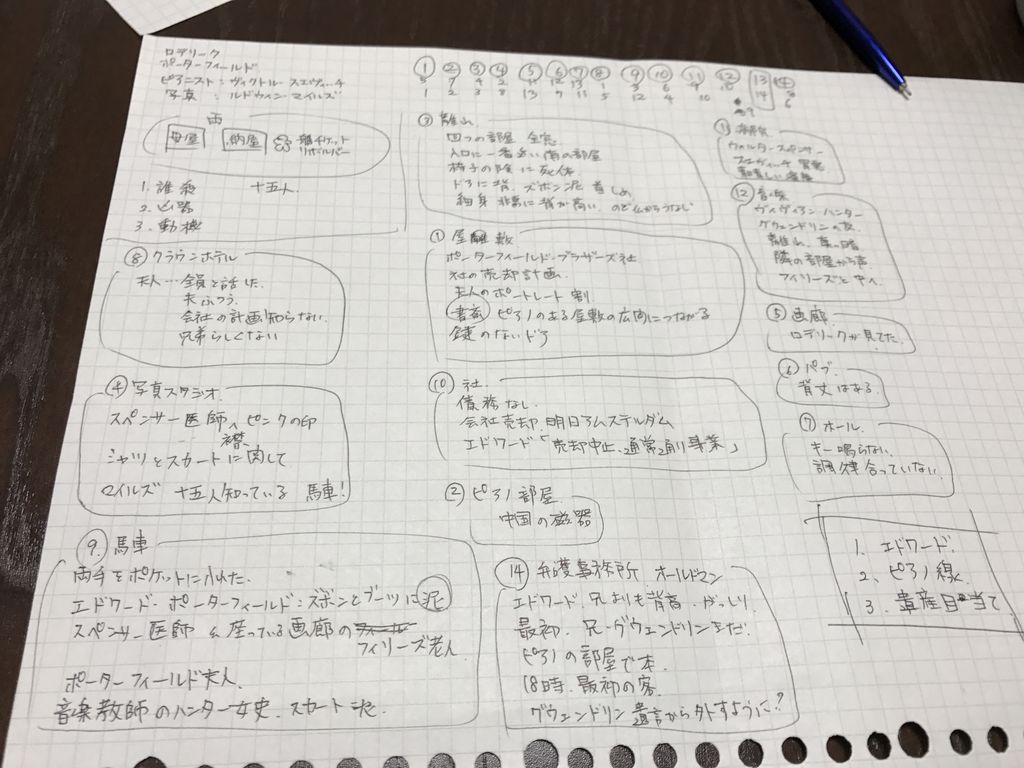 ロデリーク
ポーターフィールド
ピアニスト：ヴィクトル・スエヴィッチ
写真：ルドウィン・マイルズ
① ② ③ ④ ⑤ ⑥ ⑦ ⑧ ⑨ ⑩ ⑪ ⑫ 13 ⑭
雨
母屋
納屋
チケット
リボルバー
1. 誰を 十五人
2. 凶器
3. 動機
③ 離れ
四つの部屋 全窓
入口に一番近い南の部屋
椅子の陰に死体
ドアに背、ズボン泥 首しめ
細身 非常に背が高い
① 屋敷
ポーターフィールド・ブラザーズ社
社の売却計画
夫人のポートレート
書斎 ピアノのある屋敷の広間につながる
鍵のないドア
⑧ クラウンホテル
夫人…全員と話した
夫ふつう
会社の計画知らない
兄弟らしくない
④ 写真スタジオ
スペンサー医師 襟 ピンクの印
シャツとスカートに関して
マイルズ 十五人知っている 馬車!
⑩ 社
債務なし
会社売却、明日アムステルダム
エドワード「売却中止、通常通り事業」
② ピアノ部屋
中国の磁器
9. 馬車
両手をポケットに入れた
エドワード・ポーターフィールド：ズボンとブーツに泥
スペンサー医師 座っている画廊の
フィリーズ老人
ポーターフィールド夫人
音楽教師のハンター女史、スカート
⑭ 弁護事務所 オールドマン
エドワード、兄よりも背高、がっしり
最初、兄・グウェンドリンまだ
ピアノの部屋で本
18時、最初の客
グウェンドリン遺言から外すように?
ウォルター・スペンサー
⑫ 音楽
ヴィヴィアン・ハンター
グウェンドリンの友
隣の部屋から声
フィリーズと
⑤ 画廊
ロデリークが見てた
⑥ パブ
背丈はある
⑦ ホール
キー鳴らない
調律合っていない
1. エドワード
2. ピアノ線
3. 遺産目当て